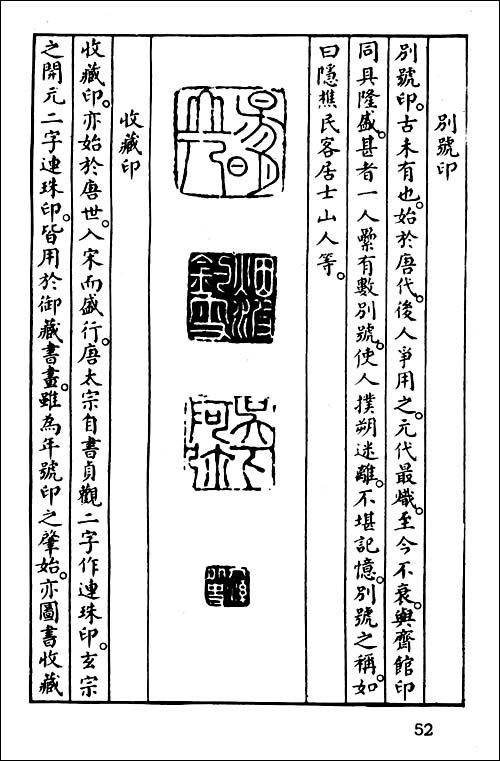 別號印
別號印。古未有也。始於唐代。後人爭用之。元代最熾。至今不衰。與齋館印
同具隆盛。甚者一人縈有數別號。使人撲朔迷離。不堪記憶。別號之稱。如
曰隱樵民客居士山人等。
收藏印
收藏印。亦始於唐世。入宋而盛行。唐太宗自書貞觀二字作連珠印。玄宗
之開元二字連珠印。皆用於御藏書畫。雖為年號印之肇始。亦圖書收藏
52